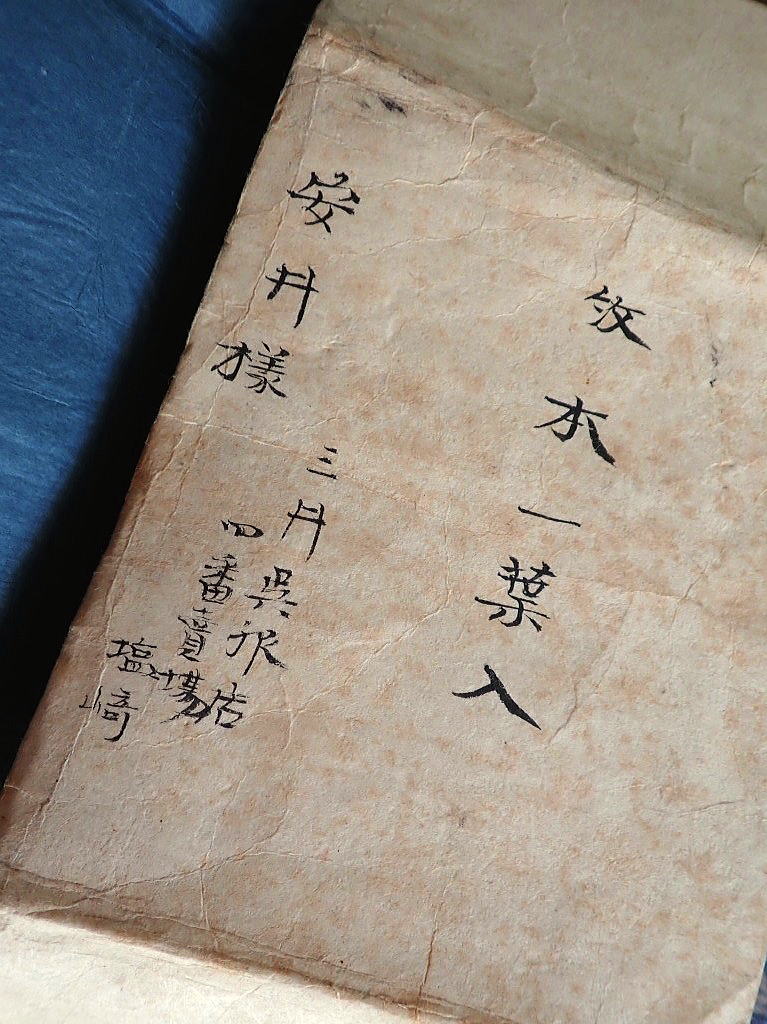 紋本一葉入
安井様
三井呉服店
四番賣場
塩崎